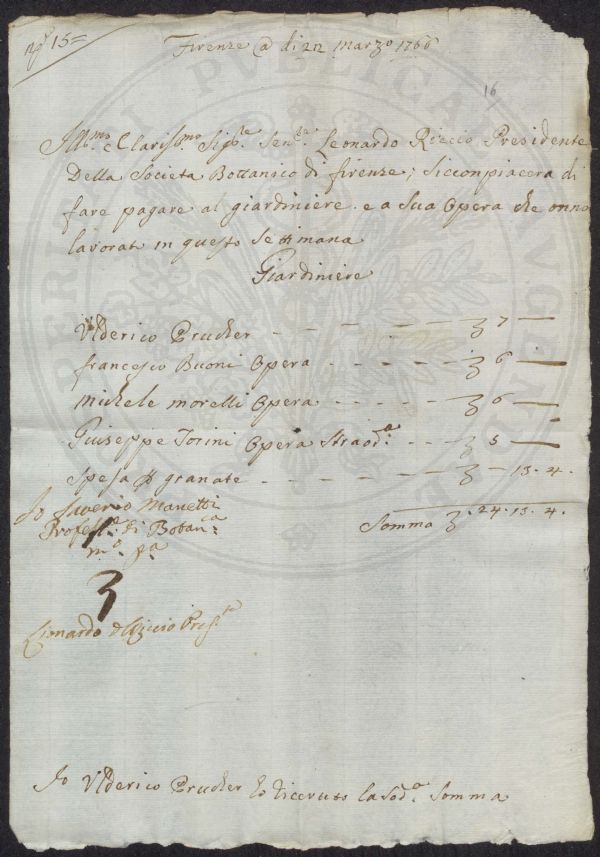 nº 15=
Firenze @ di 22 Marzo 1766
16
Ill:mo e Clariss:mo Sig:re Sen:re Leonardo Riccio Presidente
Della Societa Bottanico di firenze; Siccompiacera di
fare pagare al giardiniere e a Sua Opera che onno
lavorat in questo Settimana
Giardiniere
Ulderico Prucker - - - - - - - 3 7 —
francesco Buoni Opera - - - - 3 6 —
Michele Morelli Opera - - - - 3 6 —
Giuseppe Torini Opera Straod:a - - 3 5 —
Spesa p granate - - - - - - 3 — 13. 4.
Io Saverio Manetti
Profess:e di Botan:ca
m:o p:a
Somma 3. 24. 13. 4.
3
Lionardo del Riccio Pres:te
Io Ulderico Prucker ho riceuto la Sod:a Somma